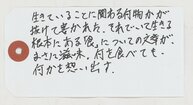 生きていることに関わる何物かが
抜けて書かれた。それでいて生きる
根本にある「眼」についての文章が
まさに滋味。何を食べても、
何かを想い出す。